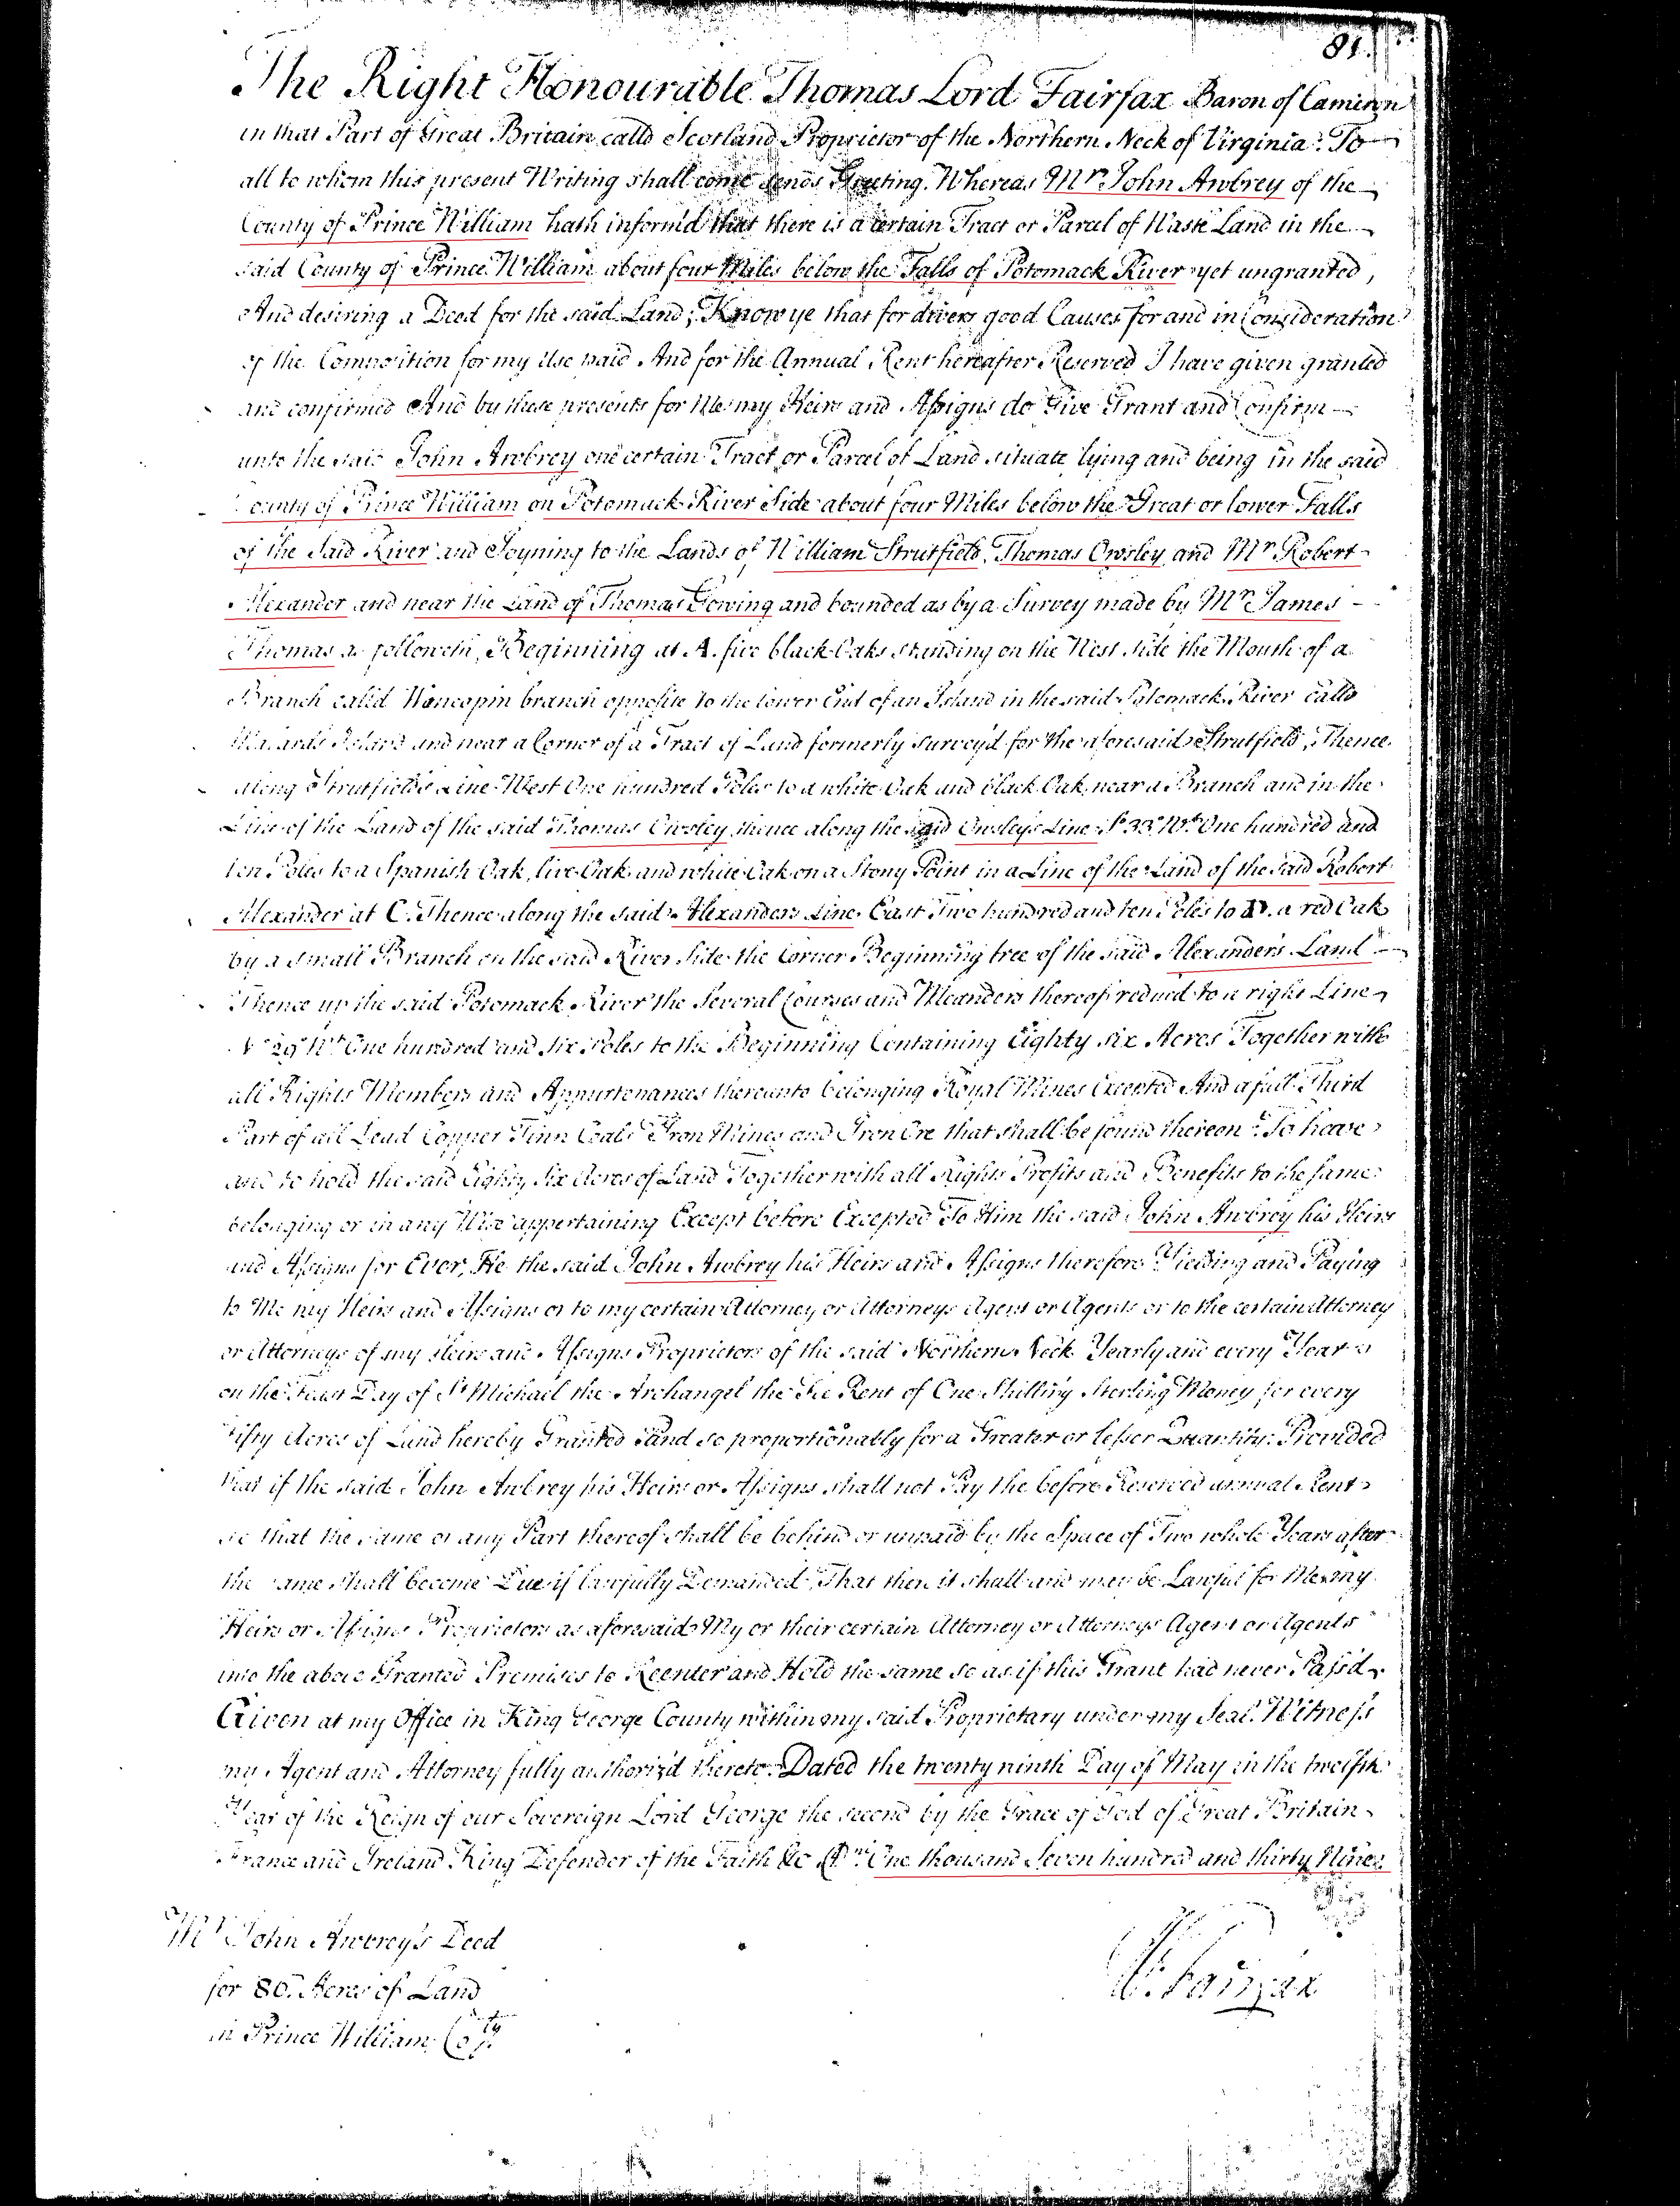 81.
The Right Honourable Thomas Lord Fairfax Baron of Cameron
in that Part of Great Britain calld Scotland Proprietor of the Northern Neck of Virginia: To
all to whom this present Writing shall come sends Greeting. Whereas Mr John Awbrey of the
County of Prince William hath inform'd that there is a certain Tract or Parcel of Waste Land in the
said County of Prince William about four Miles below the Falls of Potomack River yet ungranted,
And desiring a Deed for the said Land; Know ye that for divers good Causes for and in Consideration
of the Composition for my Use paid And for the Annual Rent hereafter Reserved I have given granted
and confirmed And by these presents for Me my Heirs and Assigns do Give Grant and Confirm
unto the said John Awbrey one certain Tract or Parcel of Land situate lying and being in the said
County of Prince William on Potomack River Side about four Miles below the Great or lower Falls
of the Said River and Joyning to the Lands of William Strutfield, Thomas Owsley and Mr Robert
Alexander and near the Land of Thomas Gowing and bounded as by a Survey made by Mr James
Thomas as followeth, Beginning at A. five black Oaks standing on the West side the Mouth of a
Branch calld Wancopin branch opposite to the lower End of an Island in the said Potomack River calld
Island and near a Corner of a Tract of Land formerly survey'd for the aforesaid Strutfield, Thence
along Strutfield's Line West One hundred Poles to a white Oak and black Oak near a Branch and in the
Line of the Land of the said Thomas Owsley thence along the said Owsleys Line So 33o Wt One hundred and
ten Poles to a Spanish Oak, live Oak and white Oak on a Stony Point in a Line of the Land of the said Robert
Alexander at C. Thence along the said Alexanders Line East Two hundred and ten Poles to D. a red Oak
by a small Branch on the said River Side the Corner Beginning tree of the said Alexander's Land
Thence up the said Potomack River the Several Courses and Meanders thereof reduced to a right Line
No 29o Wt One hundred and six Poles to the Beginning Containing Eighty six Acres Together with
all Rights Members and Appurtenances thereunto belonging Royal Mines Excepted And a full Third
Part of all Lead Copper Tinn Coals Iron Mines and Iron Ore that shall be found thereon: To have
and to hold the said Eighty Six Acres of Land Together with all Rights Profits and Benefits to the same
belonging or in any Wise appertaining Except before Excepted To Him the said John Awbrey his Heirs
and Assigns for Ever, He the said John Awbrey his Heirs and Assigns therefore Yielding and Paying
to Me my Heirs and Assigns or to my certain Attorney or Attorneys Agent or Agents or to the certain Attorney
or Attorneys of my Heirs and Assigns Proprietors of the said Northern Neck Yearly and every Year
on the Feast Day of St Michael the Archangel the Fee Rent of One Shilling Sterling Money for every
Fifty Acres of Land hereby Granted and so proportionably for a Greater or lesser Quantity: Provided
that if the said John Awbrey his Heirs or Assigns shall not Pay the before Reserved annual Rent
so that the same or any Part thereof shall be behind or unpaid by the Space of Two whole Years after
the same shall become Due if lawfully Demanded, That then it shall and may be Lawful for Me my
Heirs or Assigns Proprietors as aforesaid My or their certain Attorney or Attorneys Agent or Agents
into the above Granted Premises to Reenter and Hold the same so as if this Grant had never Pass'd.
Given at my Office in King George County within my said Proprietary under my Seal. Witness
my Agent and Attorney fully authoriz'd thereto. Dated the twenty ninth Day of May in the twelfth
Year of the Reign of our Sovereign Lord George the second by the Grace of God of Great Britain
France and Ireland King Defender of the Faith &c One thousand Seven hundred and thirty Nine.
Mr John Awbrey's Deed
for 86. Acres of Land
in Prince William Coty
W: Fairfax